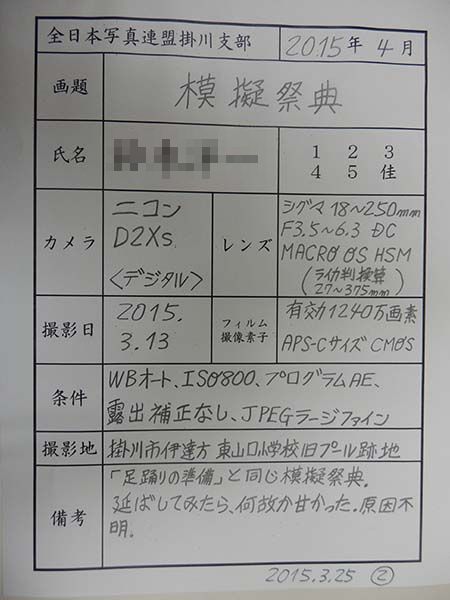 全日本写真連盟掛川支部 2015年 4月
画題 模擬祭典
氏名 1 2 3
4 5 佳
カメラ ニコン
D2Xs
〈デジタル〉
レンズ シグマ 18〜250mm
F3.5〜6.3 DC
MACRO OS HSM
(ライカ判換算
27〜375mm)
撮影日 2015.
3.13
フィルム
撮像素子
有効1240万画素
APS-Cサイズ CMOS
条件 WBオート、ISO800、プログラムAE、
露出補正なし、JPEGラージファイン
撮影地 掛川市伊達方 東山口小学校旧プール跡地
備考 「足踊りの準備」と同じ模擬祭典.
延ばしてみたら、何故か甘かった.原因不
明.
2015.3.25 ②